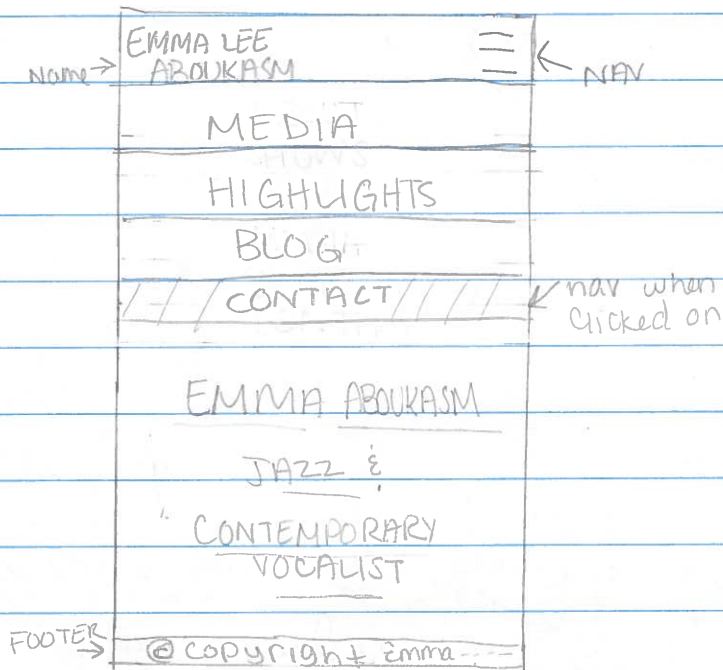 EMMA LEE
Name → ABOUKASM
← NAV
MEDIA
HIGHLIGHTS
BLOG
CONTACT
nav when
clicked on
EMMA ABOUKASM
JAZZ &
CONTEMPORARY
VOCALIST
FOOTER
© Copyright Emma